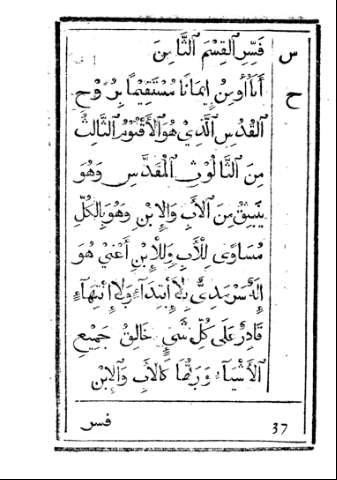 س فَسِّرِ ٱلقِسْمَ ٱلثَّامِنَ
ح أَنَا أُومِنُ إِيمَانًا مُسْتَقِيمًا بِرُوْحِ
ٱلقُدُسِ ٱلَّذِي هُوَ ٱلأُقْنُوْمُ ٱلثَّالِثُ
مِنَ ٱلثَّالُوْثِ ٱلْمُقَدَّسِ وَهُوَ
يَنْبَثِقُ مِنَ ٱلأَبِ وَٱلإِبْنِ وَهُوَ بِٱلكُلِّ
مُسَاوِي لِلْأَبِ وَلِلْإِبْنِ أَعْنِيْ هُوَ
إِلَهٌ سَرْمَدِيٌّ بِلَا إِبْتِدَآءٍ وَلَا إِنْتِهَآءٍ
قَادِرٌ عَلَى كُلِّ شَيْءٍ خَالِقُ جَمِيْعِ
ٱلأَشْيَآءِ وَرَبُّهَا كَٱلأَبِ وَٱلإِبْنِ
37 فسر